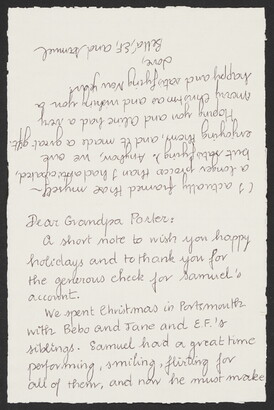 Dear Grandpa Parler:
A short note to wish you happy
holidays and to thank you for
the generous check for Samuel's
account.
We spent Christmas in Portsmouth
with Bebo and Jane and E.F.'s
siblings. Samuel had a great time
performing, smiling, flirting for
all of them, and now he must make
(I actually framed these myself –
a longer process than I had anticipated,
but satisfying). Anyhow, we are
enjoying them, and it made a great gift.
Hoping you and Aline had a very
merry Christmas and wishing you a
happy and satisfying New Year!
Love,
Bella, E.F., and Samuel